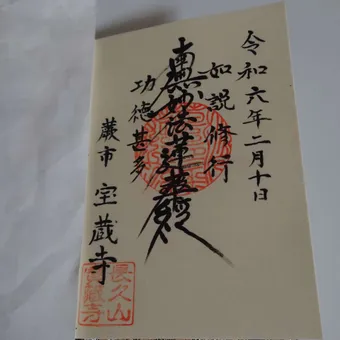 令和六年二月十日
如説修行
南無妙法蓮華経
功徳甚多
蕨市 宝蔵寺
長久山
宝蔵寺